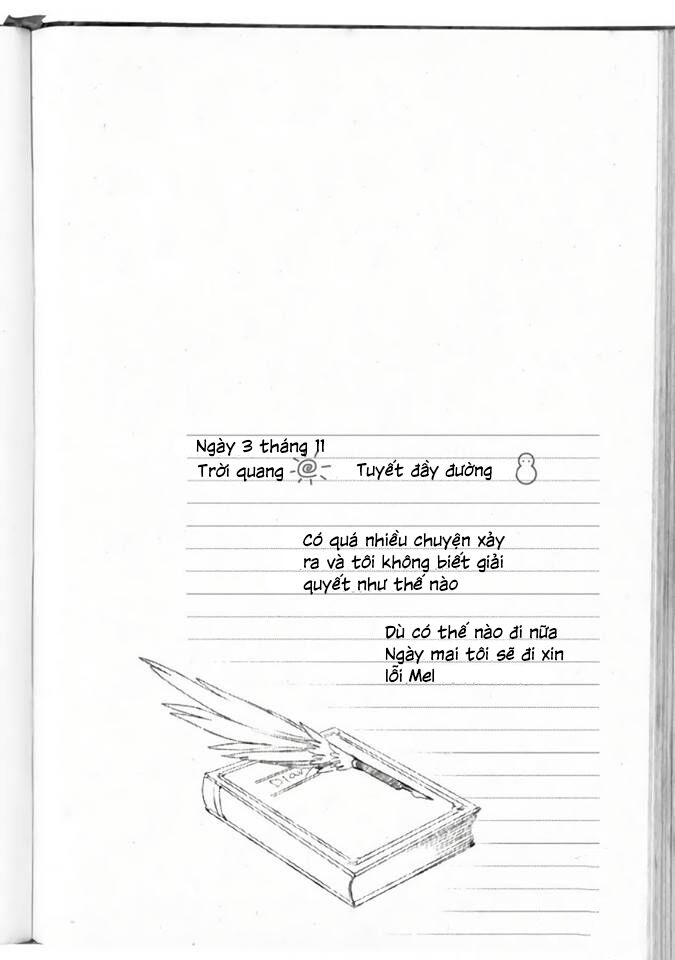 Ngày 3 tháng 11
Trời quang Tuyết đầy đường
Có quá nhiều chuyện xảy
ra và tôi không biết giải
quyết như thế nào
Dù có thế nào đi nữa
Ngày mai tôi sẽ đi xin
lỗi Mel
Diary